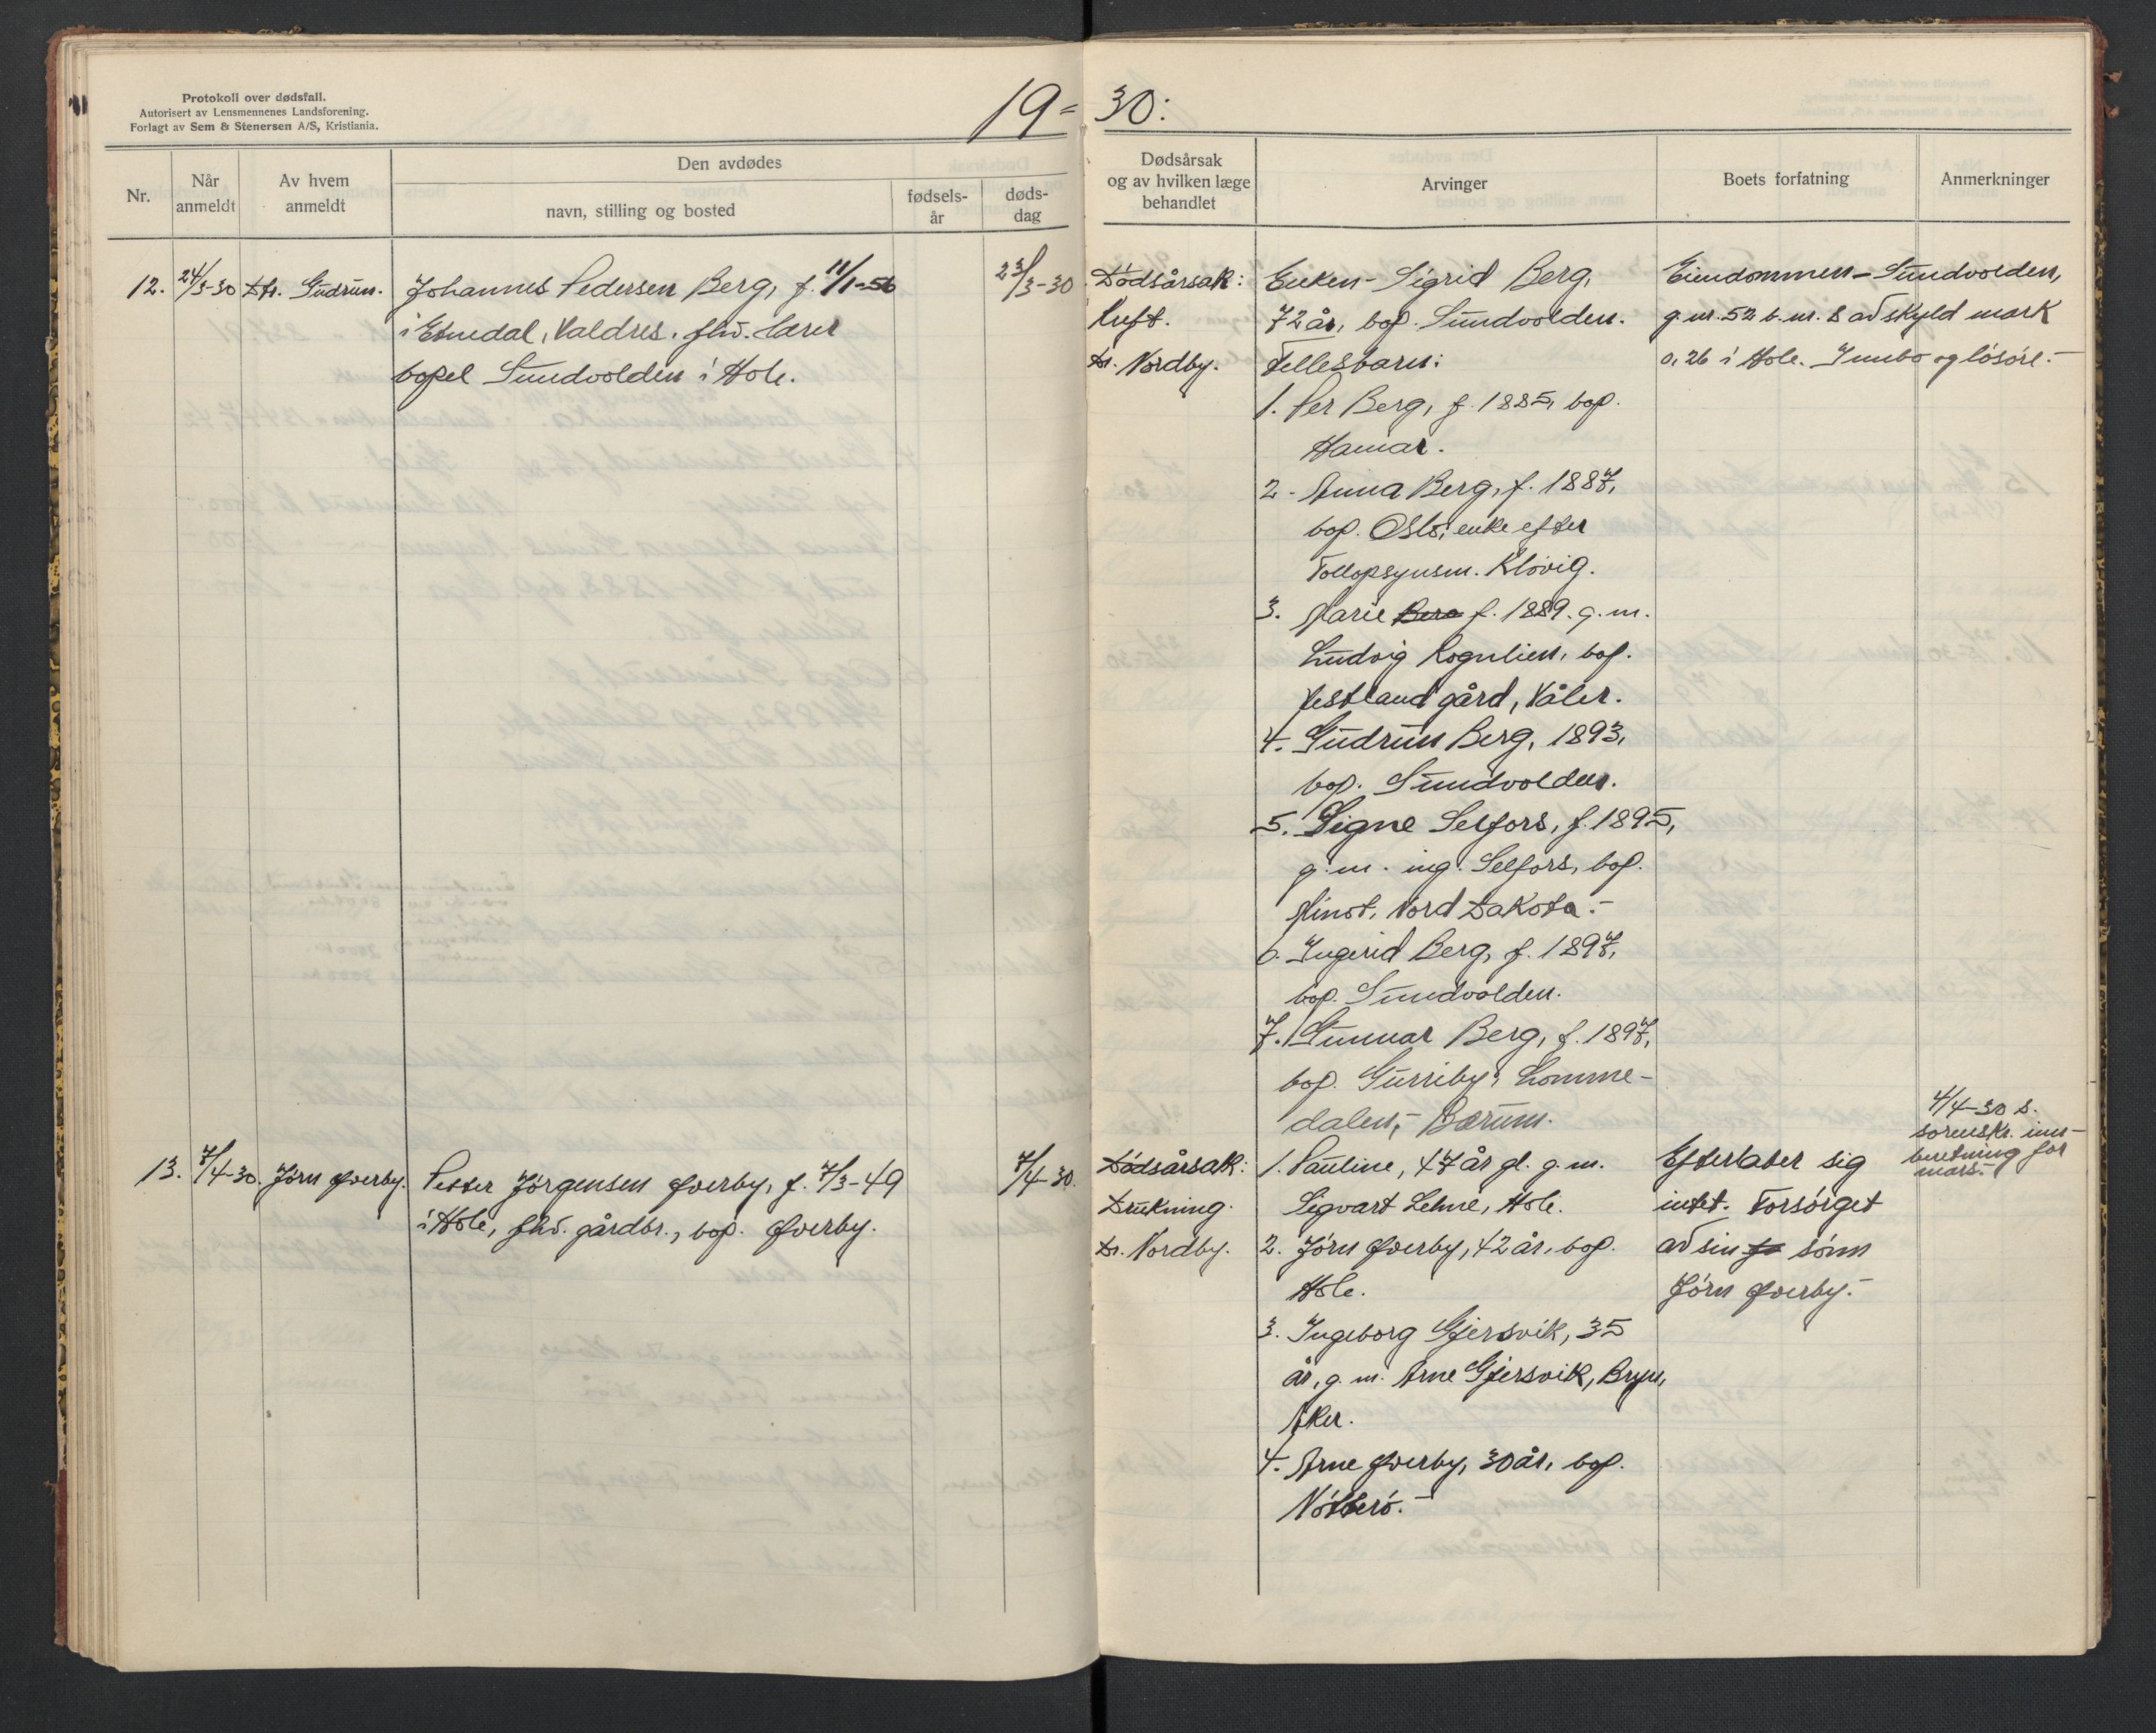 Protokoll over dødsfall.
Autorisert av Lensmennenes Landsforening.
Forlagt av Sem & Stenersen A/S, Kristiania.
19= 30:
Nr.
Når anmeldt
Av hvem anmeldt
Den avdødes
navn, stilling og bosted
fødsels-år
døds-dag
Dødsårsak og av hvilken læge behandlet
Arvinger
Boets forfatning
Anmerkninger
12. 24/3-30 Dtr. Gudrun. Johannes Pedersen Berg, f. 11/1-56 23/3-30
i Etnedal, Valdres, fhv. lærer
bopel Sundvolden i Hole.
Dødsårsak:
Kreft.
Dr. Nordby.
Enken - Sigrid Berg,
72 år, bop. Sundvolden.
Fellesbarn:
1. Per Berg, f. 1885, bop.
Hamar.
2. Anna Berg, f. 1887,
bop. Oslo, enke efter
Tollopsynsm. Kløvig.
3. Marie Berg f. 1889. g.m.
Ludvig Rognlien, bop.
Vestland gård, Våler.
4. Gudrun Berg, 1893,
bop. Sundvolden.
5. Signe Selfors, f. 1895,
g.m. ing. Selfors, bop.
Minot, Nord Dakota.-
6. Ingerid Berg, f. 1897,
bop. Sundvolden.
7. Gunnar Berg, f. 1897,
bop. Lomme-
dalen, Bærum.
Eiendommen - Sundvolden,
g.nr. 52 b.nr. 8 av skyld mark
0,26 i Hole. Innbo og løsøre.-
4/4-30 s.
sorenskr. inn-
beretning for
mars.-
13. 7/4-30. Jørn Øverby. Petter Jørgensen Øverby, f. 7/3-49 7/4-30.
i Hole, fhv. gårdbr., bop. Øverby.
Dødsårsak:
Drukning.
Dr. Nordby.
1. Pauline, 47 år gl. g.m.
Sigvart Lehne, Hole.
2. Jørn Øverby, 42 år, bop.
Hole.
3. Ingeborg Gjersvik, 35
år, g.m. Arne Gjersvik, Bryn,
Aker.
4. Arne Øverby, 30 år, bop.
Nøtterø.-
Efterlater sig
intet. Forsørget
av sin sønn
Jørn Øverby.-